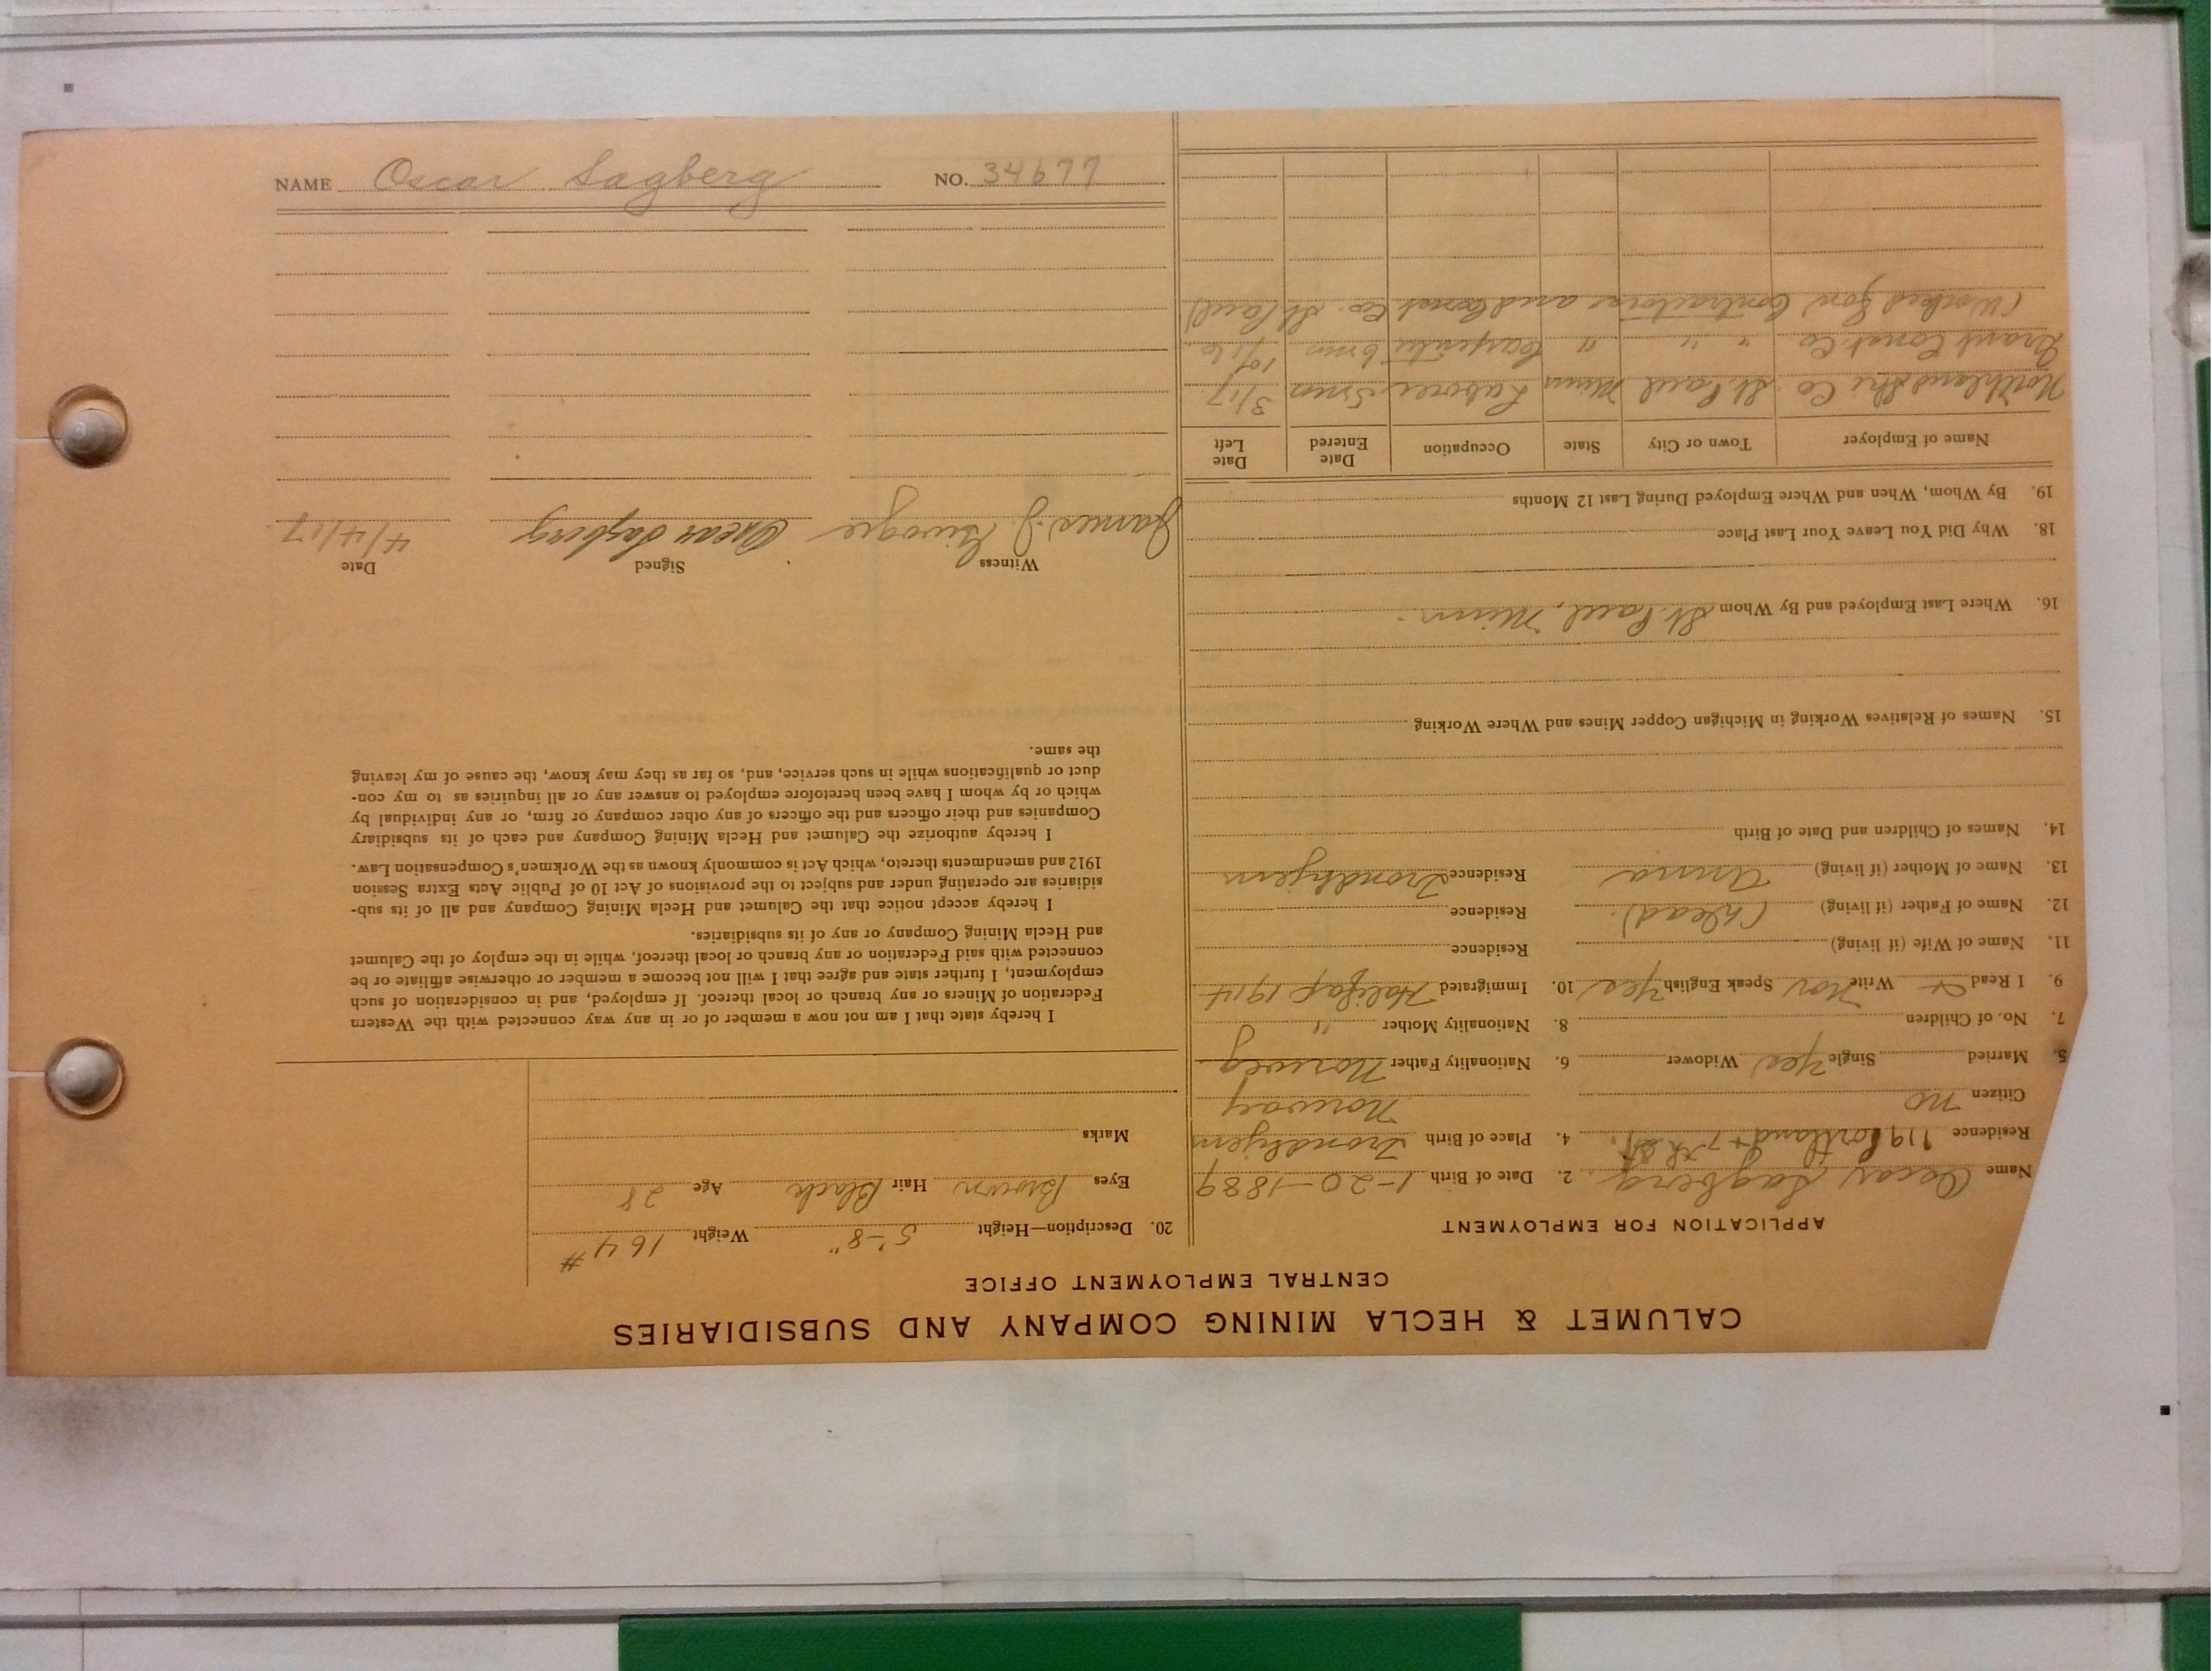 CALUMET & HECLA MINING COMPANY AND SUBSIDIARIES
CENTRAL EMPLOYMENT OFFICE
APPLICATION FOR EMPLOYMENT
Name Oscar Sagberg 2. Date of Birth 1-20-1889
Residence 119 Cortland + 7th St. 4. Place of Birth Trondhjem
Citizen no Norway
5. Married Single Yes Widower 6. Nationality Father Norweg
7. No. of Children 8. Nationality Mother "
9. I Read + Write Nor Speak English Yes 10. Immigrated Halifax 1914
11. Name of Wife (if living) Residence
12. Name of Father (if living) (Dead) Residence
13. Name of Mother (if living) Anna Residence Trondhjem
14. Names of Children and Date of Birth
15. Names of Relatives Working in Michigan Copper Mines and Where Working
16. Where Last Employed and By Whom St. Paul, Minn.
18. Why Did You Leave Your Last Place
19. By Whom, When and Where Employed During Last 12 Months
Name of Employer Town or City State Occupation Date Entered Date Left
Northland Co. St Paul Minn Laborer 5 mo 3/17
Grant Const Co. " " " Carpenter 6 mo 10/16
(Worked for Contractors and Const Co. St Paul)
20. Description—Height 5'-8" Weight 164 #
Eyes Brown Hair Black Age 28
Marks
I hereby state that I am not now a member of or in any way connected with the Western
Federation of Miners or any branch or local thereof. If employed, and in consideration of such
employment, I further state and agree that I will not become a member or otherwise affiliate or be
connected with said Federation or any branch or local thereof, while in the employ of the Calumet
and Hecla Mining Company or any of its subsidiaries.
I hereby accept notice that the Calumet and Hecla Mining Company and all of its sub-
sidiaries are operating under and subject to the provisions of Act 10 of Public Acts Extra Session
1912 and amendments thereto, which Act is commonly known as the Workmen's Compensation Law.
I hereby authorize the Calumet and Hecla Mining Company and each of its subsidiary
Companies and their officers and the officers of any other company or firm, or any individual by
which or by whom I have been heretofore employed to answer any or all inquiries as to my con-
duct or qualifications while in such service, and, so far as they may know, the cause of my leaving
the same.
Witness Signed Date
James J. Oscar Sagberg 4/4/17
NAME Oscar Sagberg NO. 34677